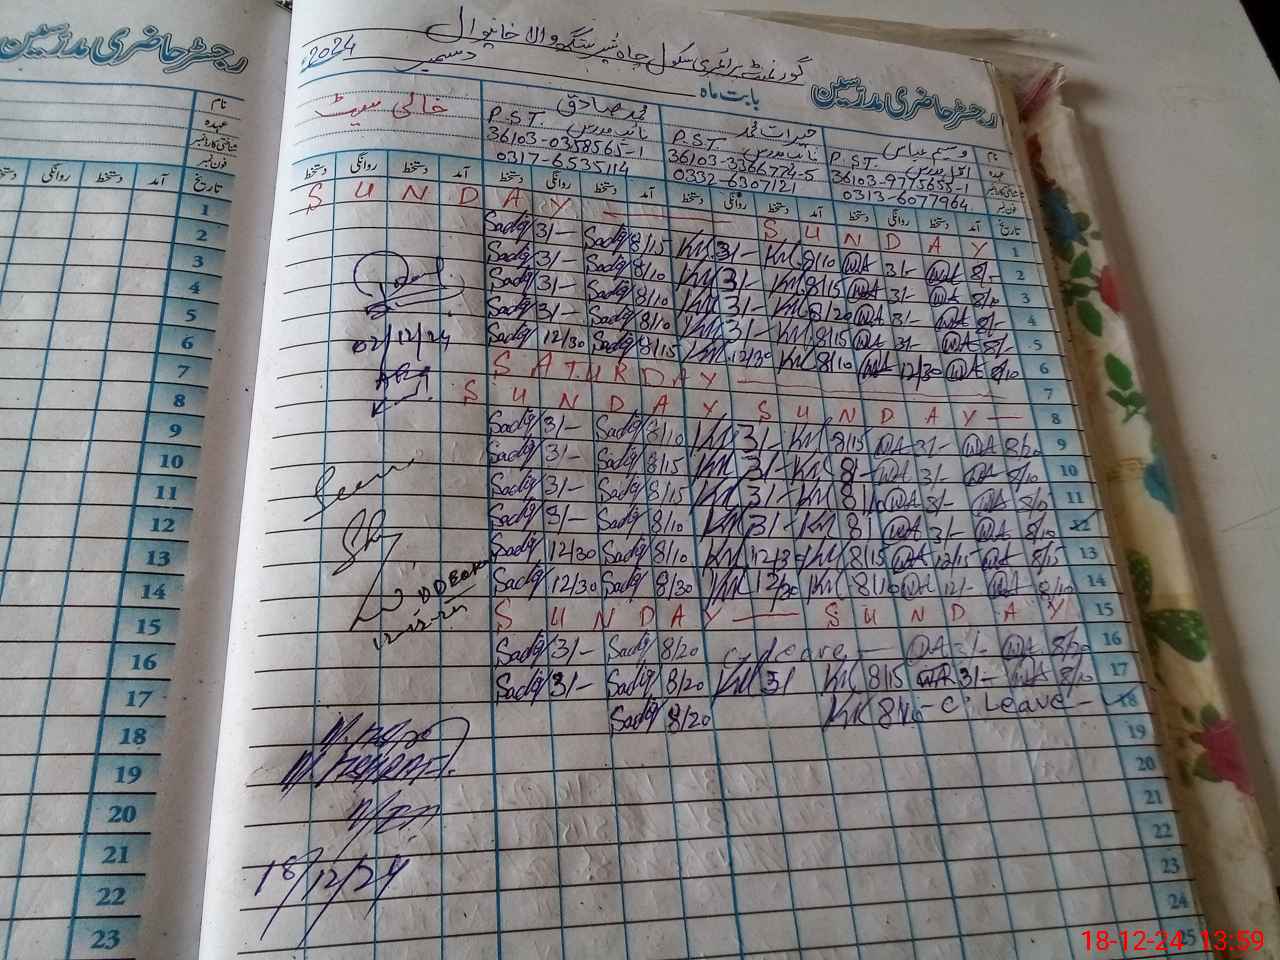 رجسٹر حاضری مدرسین
گورنمنٹ پرائمری سکول چاہ شیر سنگھ والا خانیوال
رجسٹر حاضری مدرسین بابت ماہ دسمبر 2024ء
نام وسیم عباس حیات محمد محمد صادق خالی سیٹ
عہدہ P.S.T. P.S.T نائب مدرس P.S.T. نائب مدرس
36103-9775655-1 36103-3366774-5 36103-0358565-1
فون نمبر 0313-6077964 0332-6307121 0317-6535114
تاریخ آمد دستخط روانگی دستخط آمد دستخط روانگی دستخط آمد دستخط روانگی دستخط آمد دستخط روانگی دستخط
S U N D A Y S U N D A Y 1
Sadiq 3/- Sadiq 8/15 KM 3/- KM 8/10 WA 3/- WA 8/- 2
Sadiq 3/- Sadiq 8/10 KM 3/- KM 8/15 WA 3/- WA 8/10 3
Sadiq 3/- Sadiq 8/10 KM 3/- KM 8/20 WA 3/- WA 8/- 4
Sadiq 3/- Sadiq 8/10 KM 3/- KM 8/15 WA 3/- WA 8/- 5
Sadiq 12/30 Sadiq 8/15 KM 12/30 KM 8/10 WA 12/30 WA 8/10 6
S A T U R D A Y 7
S U N D A Y S U N D A Y 8
Sadiq 3/- Sadiq 8/10 KM 3/- KM 8/15 WA 3/- WA 8/20 9
Sadiq 3/- Sadiq 8/15 KM 3/- KM 8/- WA 3/- WA 8/10 10
Sadiq 3/- Sadiq 8/15 KM 3/- KM 8/ WA 3/- WA 8/ 11
Sadiq 3/- Sadiq 8/10 KM 3/- KM 8/ WA 3/- WA 8/10 12
Sadiq 12/30 Sadiq 8/10 KM 12/30 KM 8/15 WA 12/15 WA 8/15 13
Sadiq 12/30 Sadiq 8/30 KM 12/30 KM 8/10 WA 12/- WA 8/10 14
S U N D A Y S U N D A Y 15
Sadiq 3/- Sadiq 8/20 C. Leave WA 3/- WA 8/20 16
Sadiq 3/- Sadiq 8/20 KM 3/ KM 8/15 WA 3/- WA 8/10 17
Sadiq 8/20 KM 8/10 C. Leave 18
19
20
21
22
23
24
25
02/12/24
12-12-24
18/12/24
نام
عہدہ
فون نمبر
تاریخ آمد دستخط روانگی دستخط
1
2
3
4
5
6
7
8
9
10
11
12
13
14
15
16
17
18
19
20
21
22
23
18-12-24 13:59